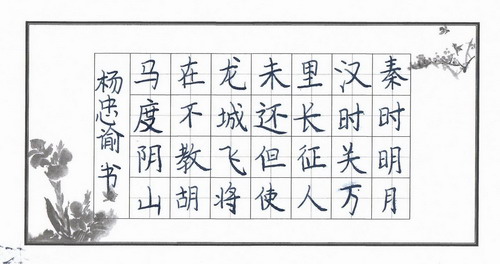 秦时明月
汉时关万
里长征人
未还但使
龙城飞将
在不教胡
马度阴山
杨忠谕书